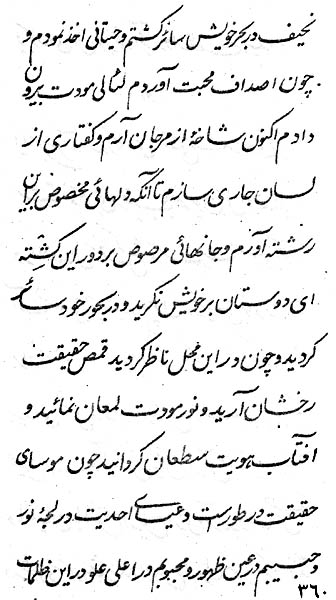 نحیف در بحر خویش سائر گشتم و حیتانی اخذ نمودم و
چون اصداف محبت آوردم لئالی مودت بیرون
دادم اکنون شاخهٔ از مرجان آرم و گفتاری از
لسان جاری سازم تا آنکه دلهائی مخصوص براین
رشته آورم و جانهائی مرصوص بر دور این کشته
ای دوستان بر خویش نگرید و در بحور خود سائر
گردید و چون در این محل ناظر گردید قمص حقیقت
رخشان آرید و نور مودت لمعان نمائید و
آفتاب هویت سطعان گردانید چون موسای
حقیقت در طور است و عیسای احدیت در لجهٔ نور
و حبیبم در عین ظهور و محبوبم در اعلی علو در این ظلمات
۳۶۰